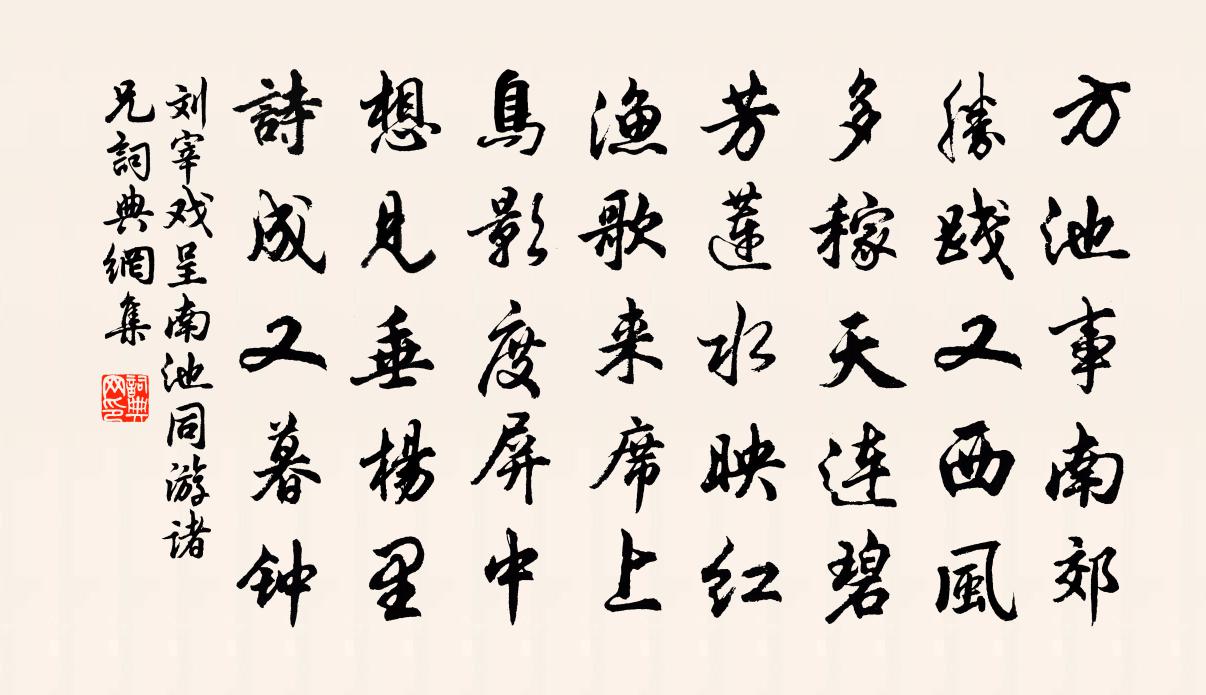 方池事南郊
勝踐又西風
多稼天連碧
芳蓮水映红
渔歌来席上
鳥影度屏中
想見垂楊里
詩成又暮钟
刘宰戏呈南池同游诸
兄詞典網集
詞典网印